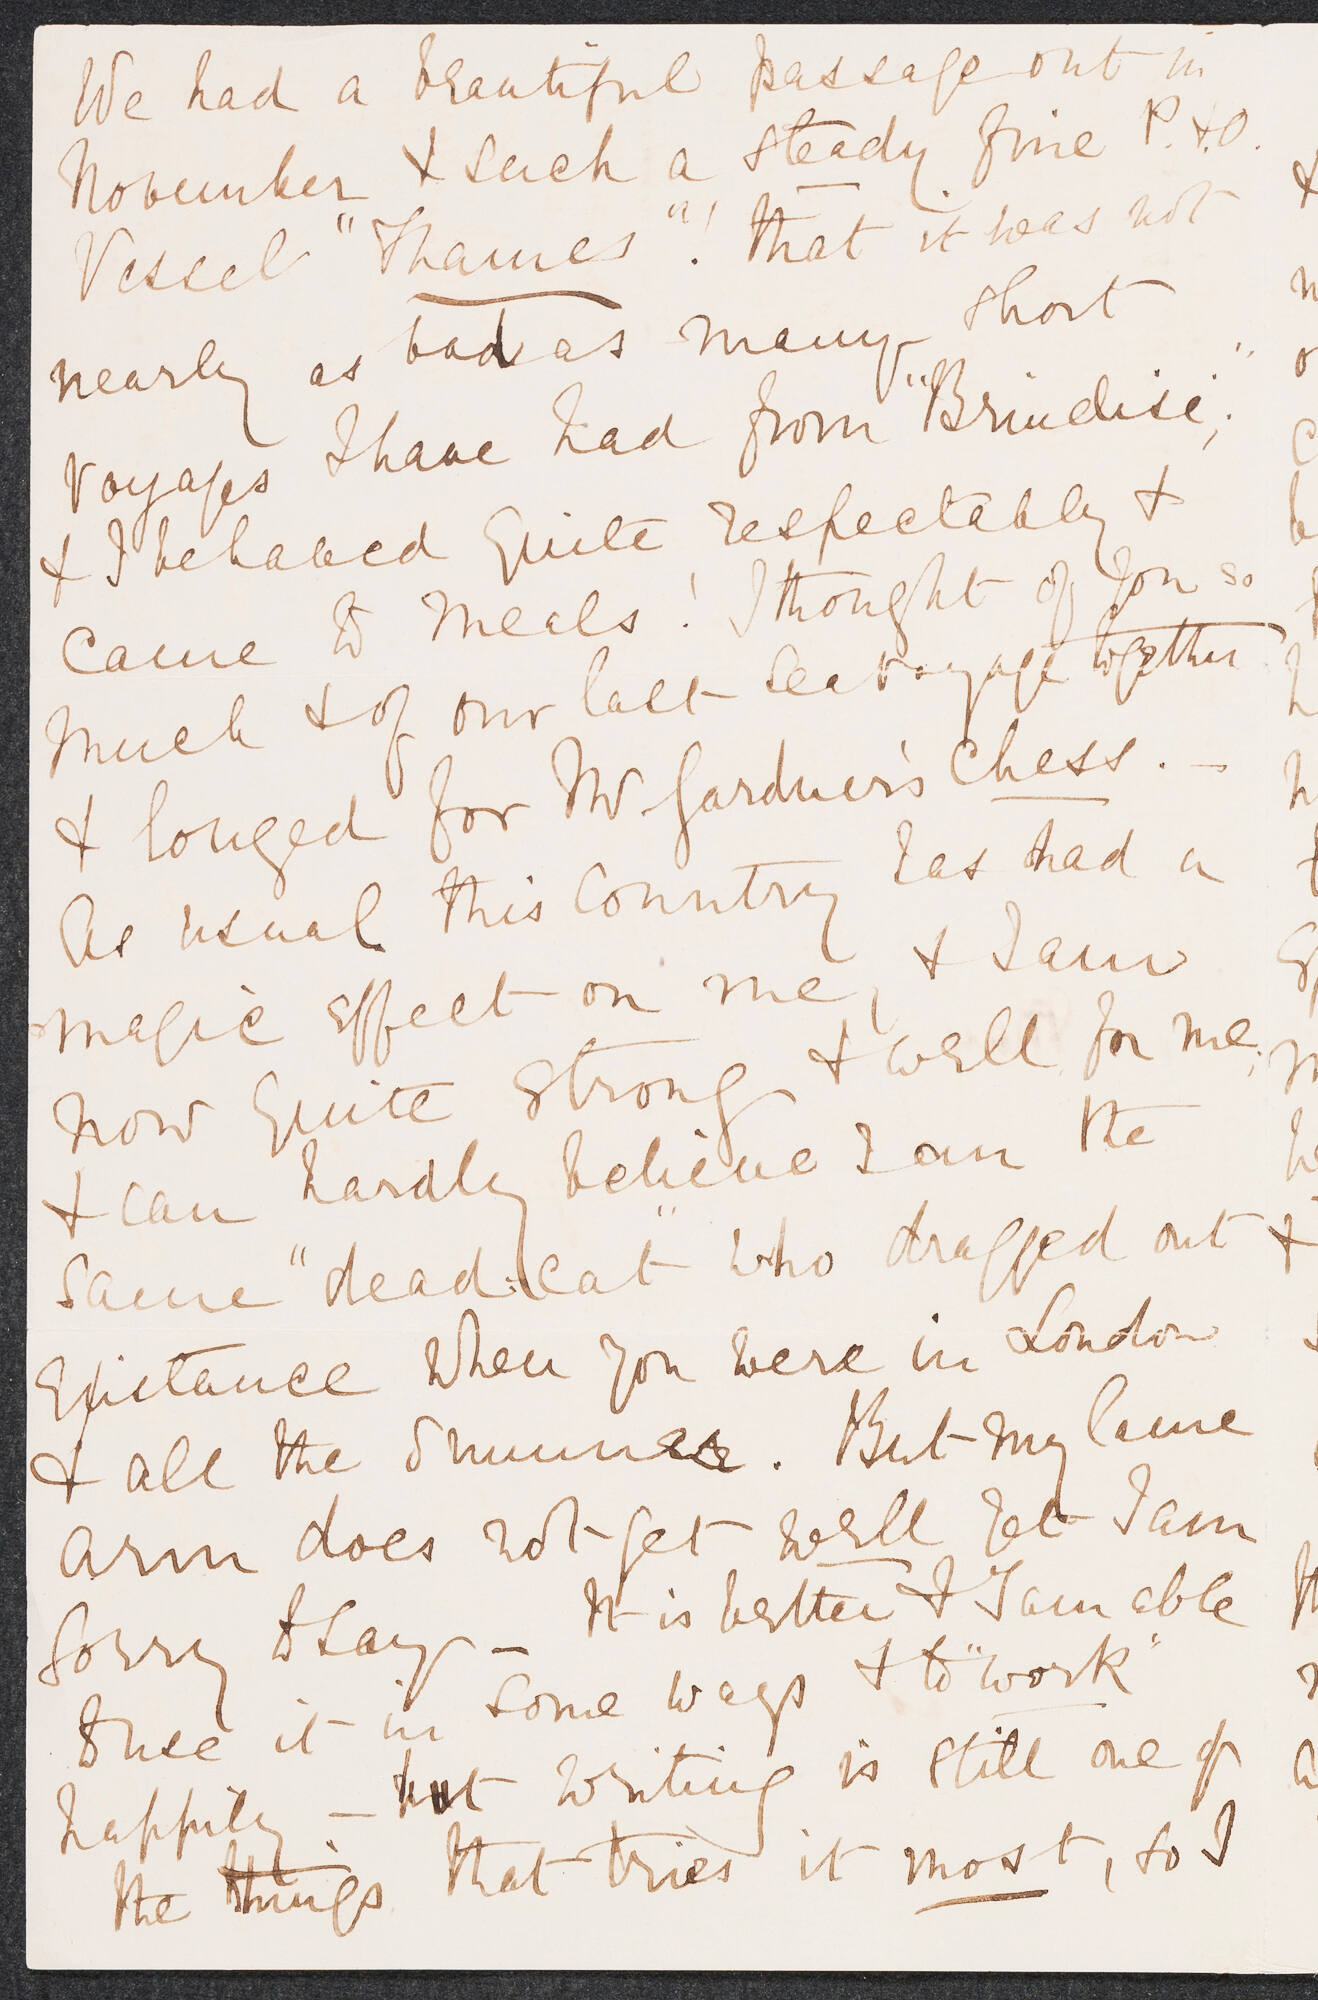 We had a beautiful passage out in
November & such a steady fine P. & O.
Vessel "Thames"! that it was not
nearly as bad as many short
voyages I have had from "Brindisi;"
& I behaved quite respectably &
came to meals! I thought of you so
much & of our last sea voyage together
& longed for Mr Gardner's chess. —
As usual this Country has had a
magic effect on me, & I am
now quite strong & well for me,
& can hardly believe I am the
same "dead cat" who dragged out
existance when you were in London
& all the summer. But my lame
arm does not get well yet I am
sorry to say — It is better & I am able
to use it in some ways & to "work"
happily — but writing is still one of
the things that tries it most, so I